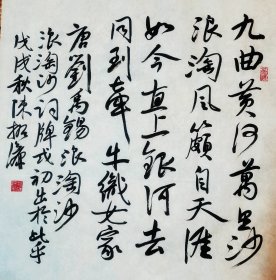 九曲黄河萬里沙
浪淘风簸自天涯
如今直上銀河去
同到牽牛織女家
唐劉禹锡浪淘沙
浪淘沙词牌或初出於此乎
戊戌秋陈